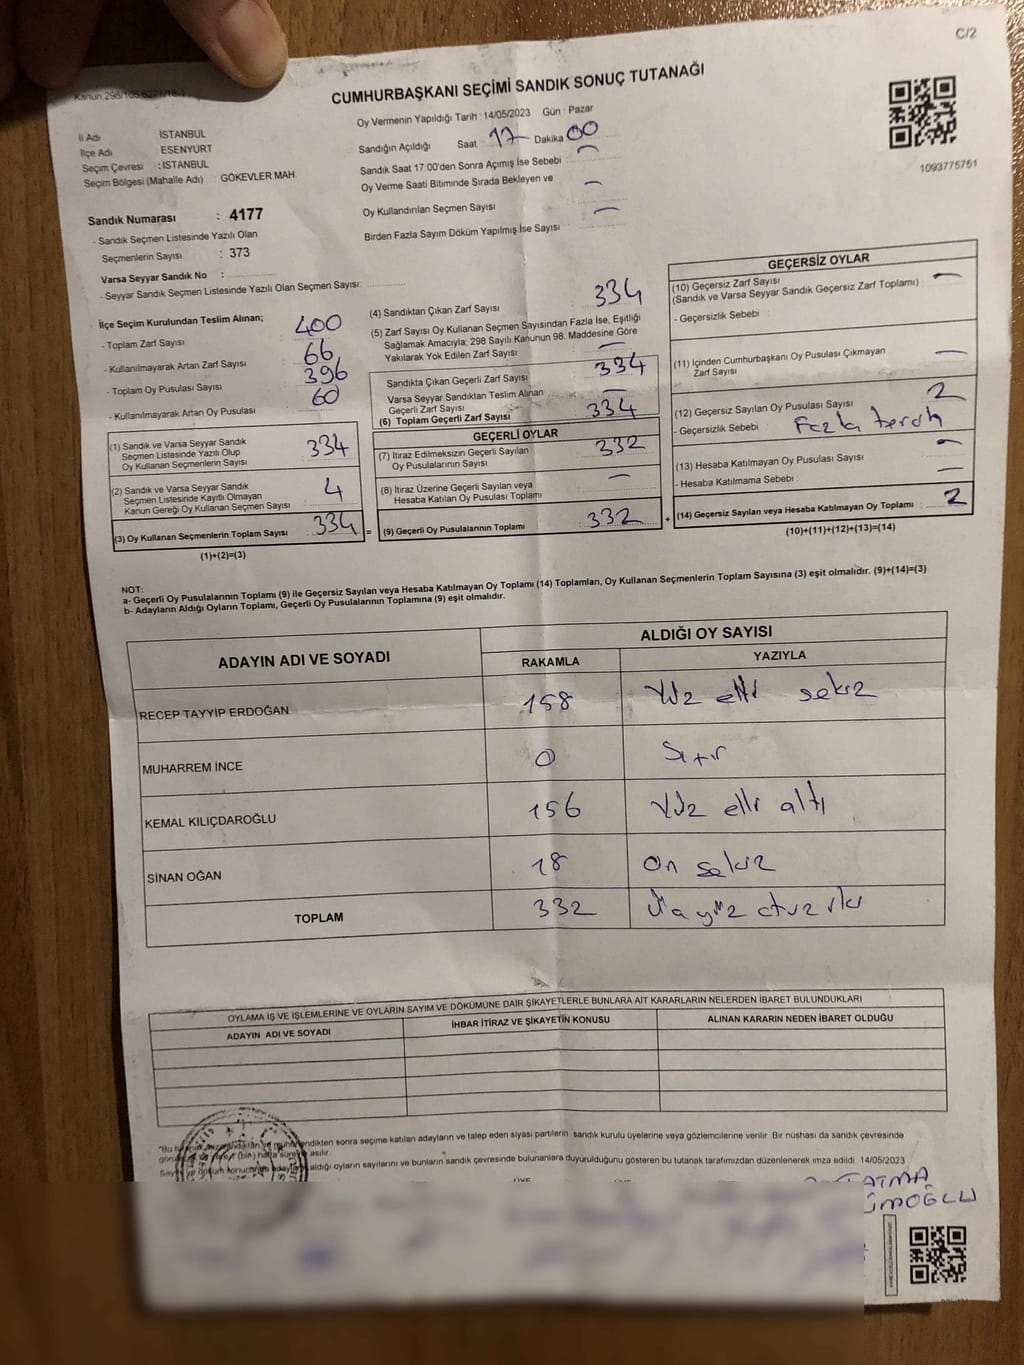 C/2
Kanun 298/105,6271/18-1
CUMHURBAŞKANI SEÇİMİ SANDIK SONUÇ TUTANAĞI
Oy Vermenin Yapıldığı Tarih : 14/05/2023 Gün : Pazar
İl Adı İSTANBUL
İlçe Adı ESENYURT
Seçim Çevresi : İSTANBUL
Seçim Bölgesi (Mahalle Adı) GÖKEVLER MAH.
Sandığın Açıldığı Saat 17 Dakika 00
Sandık Saat 17:00'den Sonra Açımış İse Sebebi : –
Oy Verme Saati Bitiminde Sırada Bekleyen ve
Oy Kullandırılan Seçmen Sayısı –
Birden Fazla Sayım Döküm Yapılmış İse Sayısı : –
1093775751
Sandık Numarası : 4177
- Sandık Seçmen Listesinde Yazılı Olan
Seçmenlerin Sayısı : 373
Varsa Seyyar Sandık No :
- Seyyar Sandık Seçmen Listesinde Yazılı Olan Seçmen Sayısı:
İlçe Seçim Kurulundan Teslim Alınan;
- Toplam Zarf Sayısı 400
- Kullanılmayarak Artan Zarf Sayısı 66
- Toplam Oy Pusulası Sayısı 396
- Kullanılmayarak Artan Oy Pusulası 60
(1) Sandık ve Varsa Seyyar Sandık
Seçmen Listesinde Yazılı Olup
Oy Kullanan Seçmenlerin Sayısı 334
(2) Sandık ve Varsa Seyyar Sandık
Seçmen Listesinde Kayıtlı Olmayan
Kanun Gereği Oy Kullanan Seçmen Sayısı 4
(3) Oy Kullanan Seçmenlerin Toplam Sayısı 334 =
(1)+(2)=(3)
(4) Sandıktan Çıkan Zarf Sayısı 334
(5) Zarf Sayısı Oy Kullanan Seçmen Sayısından Fazla İse, Eşitliği
Sağlamak Amacıyla; 298 Sayılı Kanunun 98. Maddesine Göre
Yakılarak Yok Edilen Zarf Sayısı –
Sandıkta Çıkan Geçerli Zarf Sayısı 334
Varsa Seyyar Sandıktan Teslim Alınan
Geçerli Zarf Sayısı –
(6) Toplam Geçerli Zarf Sayısı 334
GEÇERLİ OYLAR
(7) İtiraz Edilmeksizin Geçerli Sayılan
Oy Pusulalarının Sayısı 332
(8) İtiraz Üzerine Geçerli Sayılan veya
Hesaba Katılan Oy Pusulası Toplamı –
(9) Geçerli Oy Pusulalarının Toplamı 332 +
GEÇERSİZ OYLAR
(10) Geçersiz Zarf Sayısı –
(Sandık ve Varsa Seyyar Sandık Geçersiz Zarf Toplamı) :
- Geçersizlik Sebebi :
(11) İçinden Cumhurbaşkanı Oy Pusulası Çıkmayan
Zarf Sayısı –
(12) Geçersiz Sayılan Oy Pusulası Sayısı 2
- Geçersizlik Sebebi : Fazla tercih
(13) Hesaba Katılmayan Oy Pusulası Sayısı : –
- Hesaba Katılmama Sebebi : –
(14) Geçersiz Sayılan veya Hesaba Katılmayan Oy Toplamı : 2
(10)+(11)+(12)+(13)=(14)
NOT:
a- Geçerli Oy Pusulalarının Toplamı (9) ile Geçersiz Sayılan veya Hesaba Katılmayan Oy Toplamı (14) Toplamları, Oy Kullanan Seçmenlerin Toplam Sayısına (3) eşit olmalıdır. (9)+(14)=(3)
b- Adayların Aldığı Oyların Toplamı, Geçerli Oy Pusulalarının Toplamına (9) eşit olmalıdır.
ADAYIN ADI VE SOYADI ALDIĞI OY SAYISI
RAKAMLA YAZIYLA
RECEP TAYYİP ERDOĞAN 158 Yüz elli sekiz
MUHARREM İNCE 0 Sıfır
KEMAL KILIÇDAROĞLU 156 Yüz elli altı
SİNAN OĞAN 18 On sekiz
TOPLAM 332 Üç yüz otuz iki
OYLAMA İŞ VE İŞLEMLERİNE VE OYLARIN SAYIM VE DÖKÜMÜNE DAİR ŞİKAYETLERLE BUNLARA AİT KARARLARIN NELERDEN İBARET BULUNDUKLARI
ADAYIN ADI VE SOYADI İHBAR İTİRAZ VE ŞİKAYETİN KONUSU ALINAN KARARIN NEDEN İBARET OLDUĞU
"Bu sonra seçime katılan adayların ve talep eden siyasi partilerin sandık kurulu üyelerine veya gözlemcilerine verilir. Bir nüshası da sandık çevresinde
(bir) hafta süreyle asılır.
aldığı oyların sayılarını ve bunların sandık çevresinde bulunanlara duyurulduğunu gösteren bu tutanak tarafımızdan düzenlenerek imza edildi. 14/05/2023
ÜYE ÜYE
FATMA